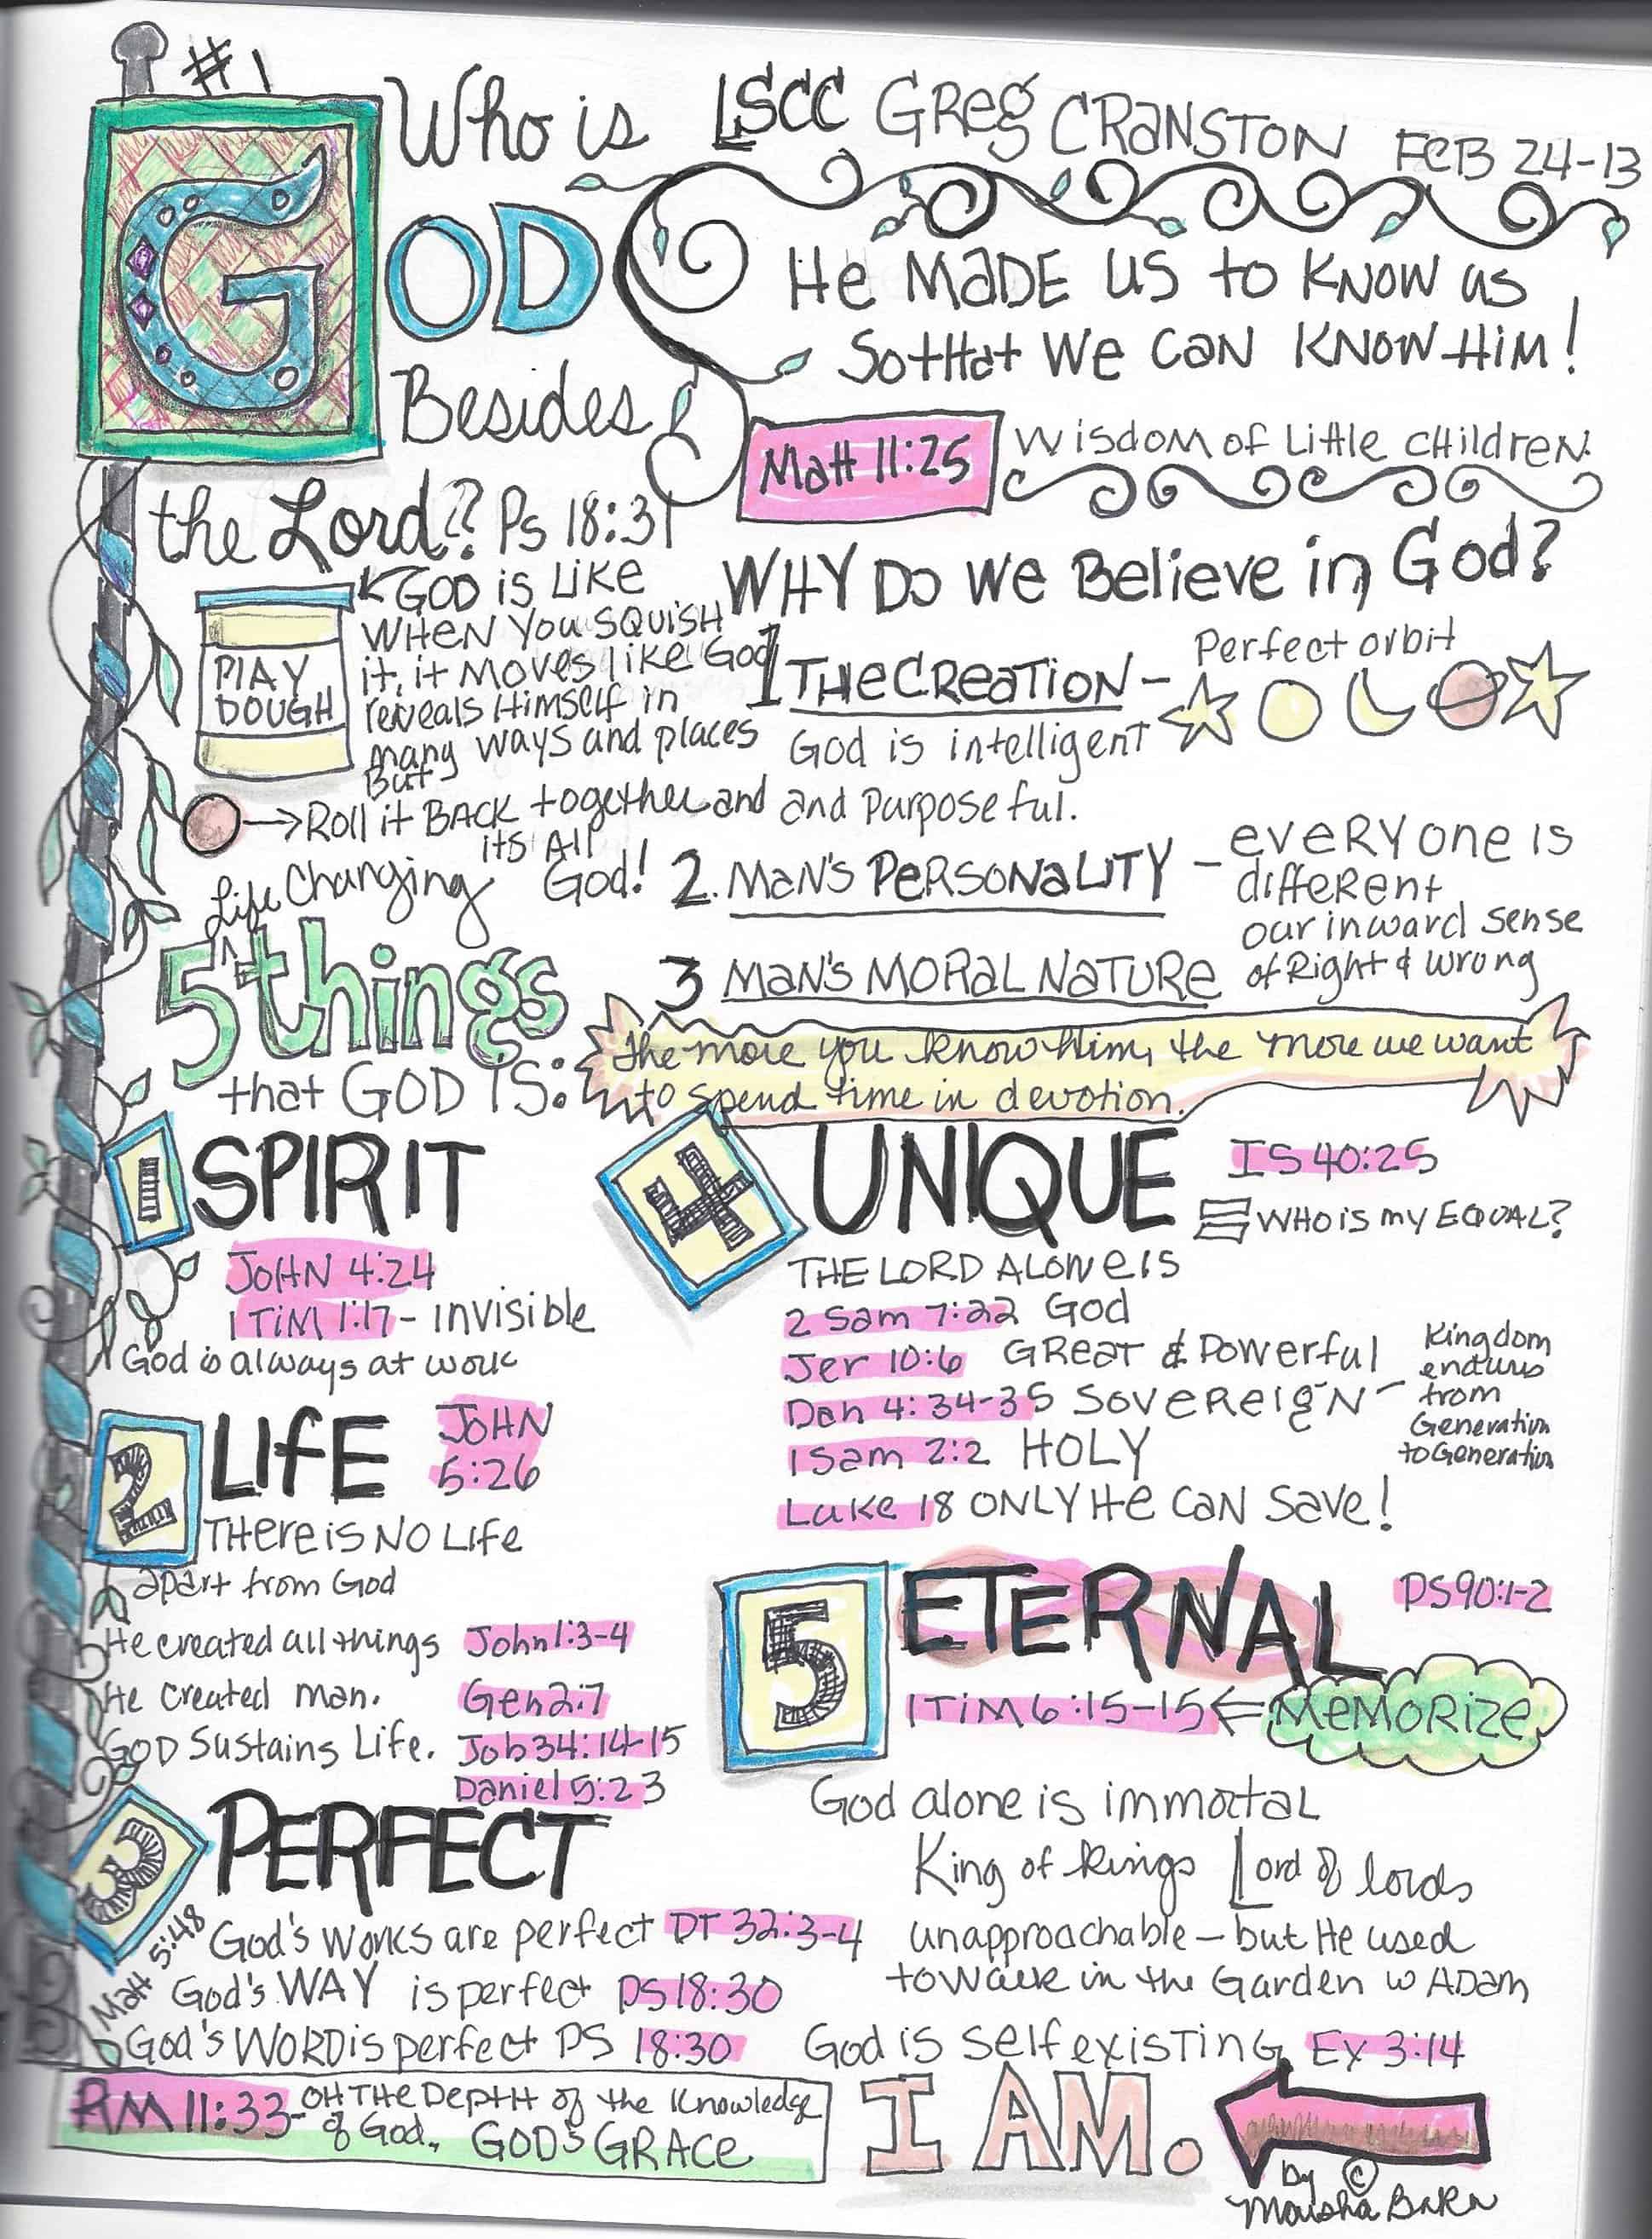 #1
Who is
GOD
Besides
the Lord? Ps 18:31
LSCC Greg CRANSTON FEB 24-13
He MADE us to KNOW us
So tHat We CAN KNOW Him!
Matt 11:25
Wisdom of Little Children
PlAY
DOUGH
GOD is Like
WHeN You SQUISH
it, it Moves like God
reveals Himself in
many ways and places
But
Roll it BACK together and
its All
God!
WHY Do We Believe in God?
1 THe CReATiON - Perfect orbit
God is intelligent
and Purposeful.
2. MaN's PeRSONaLITY - eveRYone is
different
3 MaN's MORaL NaTURe
our inward sense
of Right & wrong
The more you know Him, the more we want
to spend time in devotion.
Life Changing
5 things
that GOD IS:
1 SPIRIT
JOHN 4:24
1 TiM 1:17 - INVisible
God is always at work
2 LIFE
JOHN
5:26
THere is NO Life
apart from God
He created all things John 1:3-4
He created man. Gen 2:7
GOD Sustains Life. Job 34:14-15
Daniel 5:23
3 PERFECT
Matt 5:48
God's Works are perfect DT 32:3-4
God's WAY is perfect PS 18:30
God's WORD is perfect PS 18:30
RM 11:33 - OH THe DepTH of the Knowledge
of God. GOD'S GRACe
4 UNIQUE
IS 40:25
WHO is my EQUAL?
THE LORD ALONe IS
2 Sam 7:22 God
Jer 10:6 GReaT & Powerful
Dan 4:34-35 SOVeReigN -
Kingdom
endures
from
Generation
to Generation
1 Sam 2:2 HOLY
Luke 18 ONLY He CAN Save!
5 ETERNAL
PS 90:1-2
1 TiM 6:15-15 MeMORize
God alone is immortal
King of Kings Lord of lords
unapproachable - but He used
to Walk in the Garden w ADam
God is Self existing Ex 3:14
I AM.
by ©
Marsha Baker